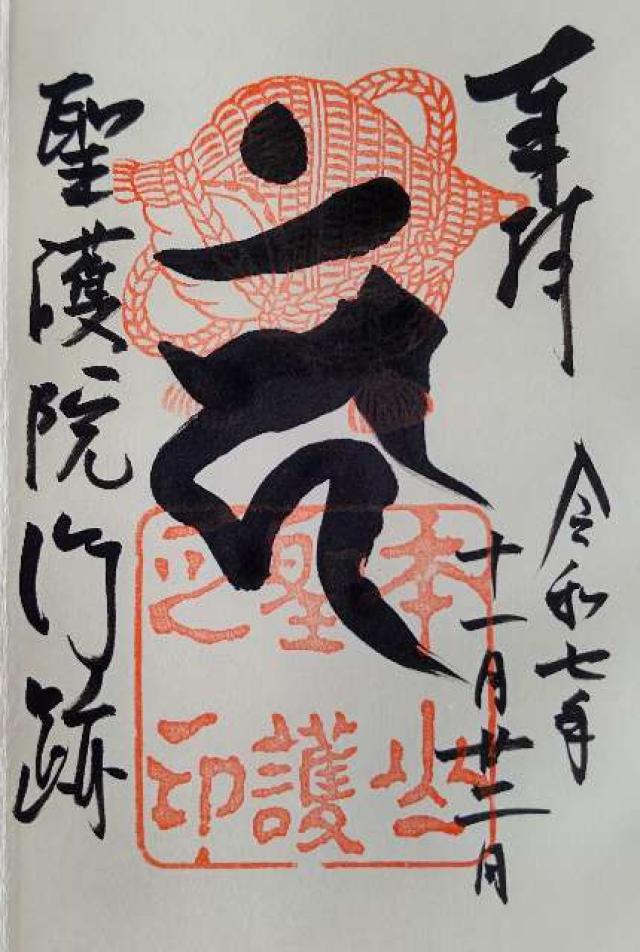 奉拝
令和七年
十一月廿二日
𑖮𑖳𑖽
聖護院门跡
本山
聖護
之印